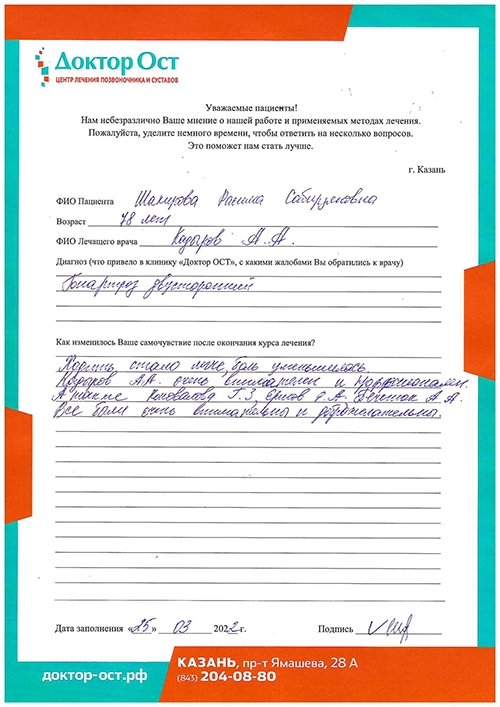 Доктор Ост
ЦЕНТР ЛЕЧЕНИЯ ПОЗВОНОЧНИКА И СУСТАВОВ
Уважаемые пациенты!
Нам небезразлично Ваше мнение о нашей работе и применяемых методах лечения.
Пожалуйста, уделите немного времени, чтобы ответить на несколько вопросов.
Это поможет нам стать лучше.
г. Казань
ФИО Пациента Шакирова
Возраст 78 лет
ФИО Лечащего врача Кадыров А.А.
Диагноз (что привело в клинику «Доктор ОСТ», с какими жалобами Вы обратились к врачу)
Гонартроз двухсторонний
Как изменилось Ваше самочувствие после окончания курса лечения?
Ходить стало легче, боль уменьшилась.
Кадыров А.А. очень внимателен и
А также Коновалова Г.З. А.А.
Все были очень внимательны и доброжелательны.
Дата заполнения «25» 03 2022г. Подпись
доктор-ост.рф
КАЗАНЬ, пр-т Ямашева, 28 А
(843) 204-08-80